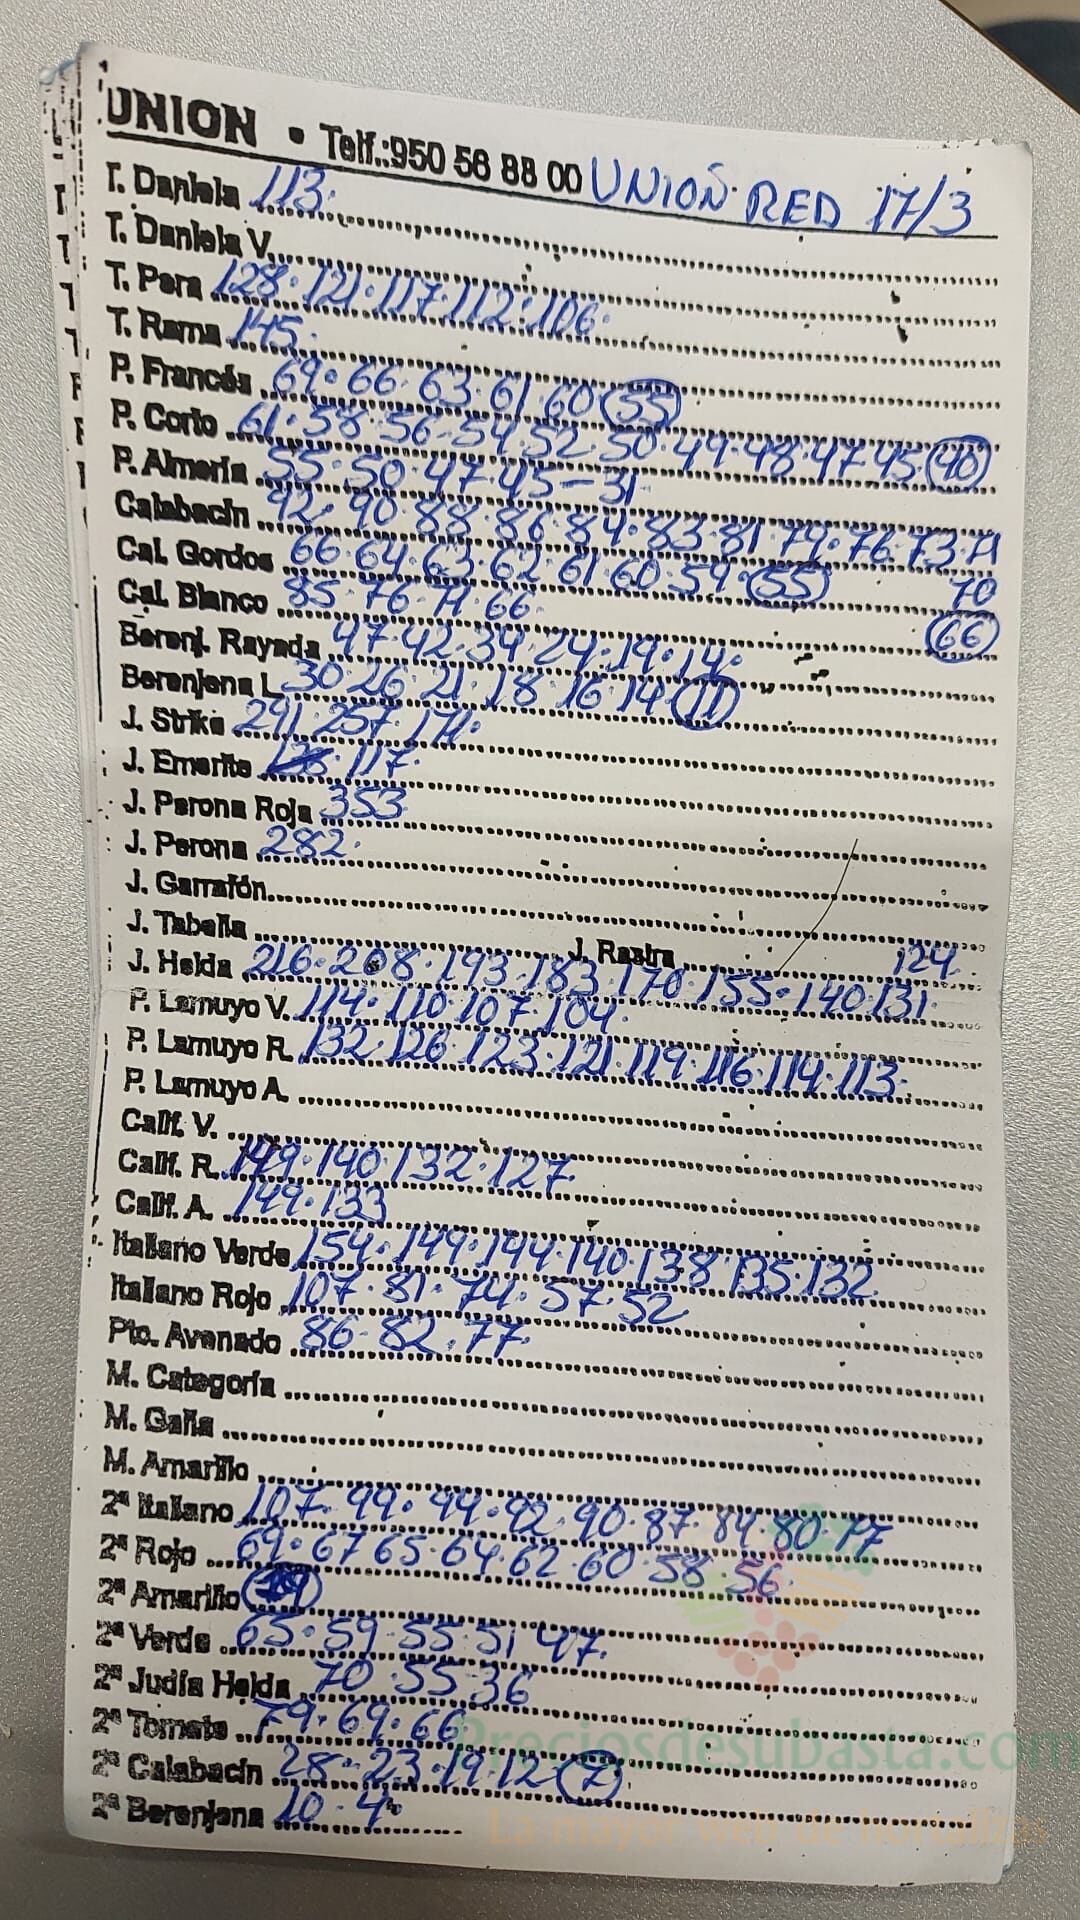 UNION • Telf.:950 56 88 00 UNION RED 17/3
T. Daniela 113.
T. Daniela V.
T. Pera 128.121.117.112.106.
T. Rama 145.
P. Francés 69.66.63.61.60 55
P. Corto 61.58.56.54.52.50.49.48.47.45 40
P. Almería 55.50.47.45-31
Calabacín 92.90.88.86.84.83.81.79.76.73.71
70
Cal. Gordos 66.64.63.62.61.60.59. 55
66
Cal. Blanco 85.76.71.66.
Berenj. Rayada 47.42.34.24.19.14.
Berenjena L 30.26.21.18.16.14 11
J. Strike 291.257.171.
J. Emerite 117.
J. Perona Roja 353
J. Perona 282.
J. Garrafón
J. Tabella J. Rastra 124
J. Helda 216.208.193.183.170.155.140.131.
P. Lamuyo V. 114.110.107.104.
P. Lamuyo R. 132.126.123.121.119.116.114.113.
P. Lamuyo A.
Calif. V.
Calif. R. 149.140.132.127
Calif. A. 149.133
Italiano Verde 154.149.144.140.138.135.132
Italiano Rojo 107.81.74.57.52
Pto. Avenado 86.82.77.
M. Categoría
M. Galia
M. Amarillo
2ª Italiano 107.99.94.92.90.87.84.80.77
2ª Rojo 69.67 65.64.62.60.58.56.
2ª Amarillo
2ª Verde 65.59.55.51 47.
2ª Judía Helda 70.55.36
2ª Tomate 79.69.66
Preciosdesubasta.com
2ª Calabacín 28.23.19.12-7.
2ª Berenjena 10.4.
La mayor web de hortalizas